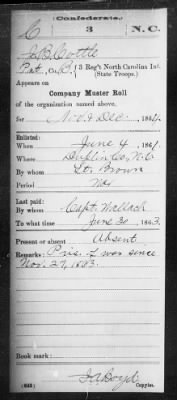 Confederate.
C 3 N.C.
J. B. Cottle
Pvt., Co. B, 3 Reg't North Carolina Inf.
(State Troops.)
Company Muster Roll
of the organization named above,
for Nov. & Dec., 1864.
Enlisted:
When June 4, 1861.
Where Duplin Co., N.C.
By whom Lt. Brown
Period War
Last paid:
By whom Capt. Wallach
To what time June 30, 1863.
Present or absent Absent
Remarks: Pris. of war since
Nov. 27, 1863.
Book mark:
J A Boyd
(642) Copyist.